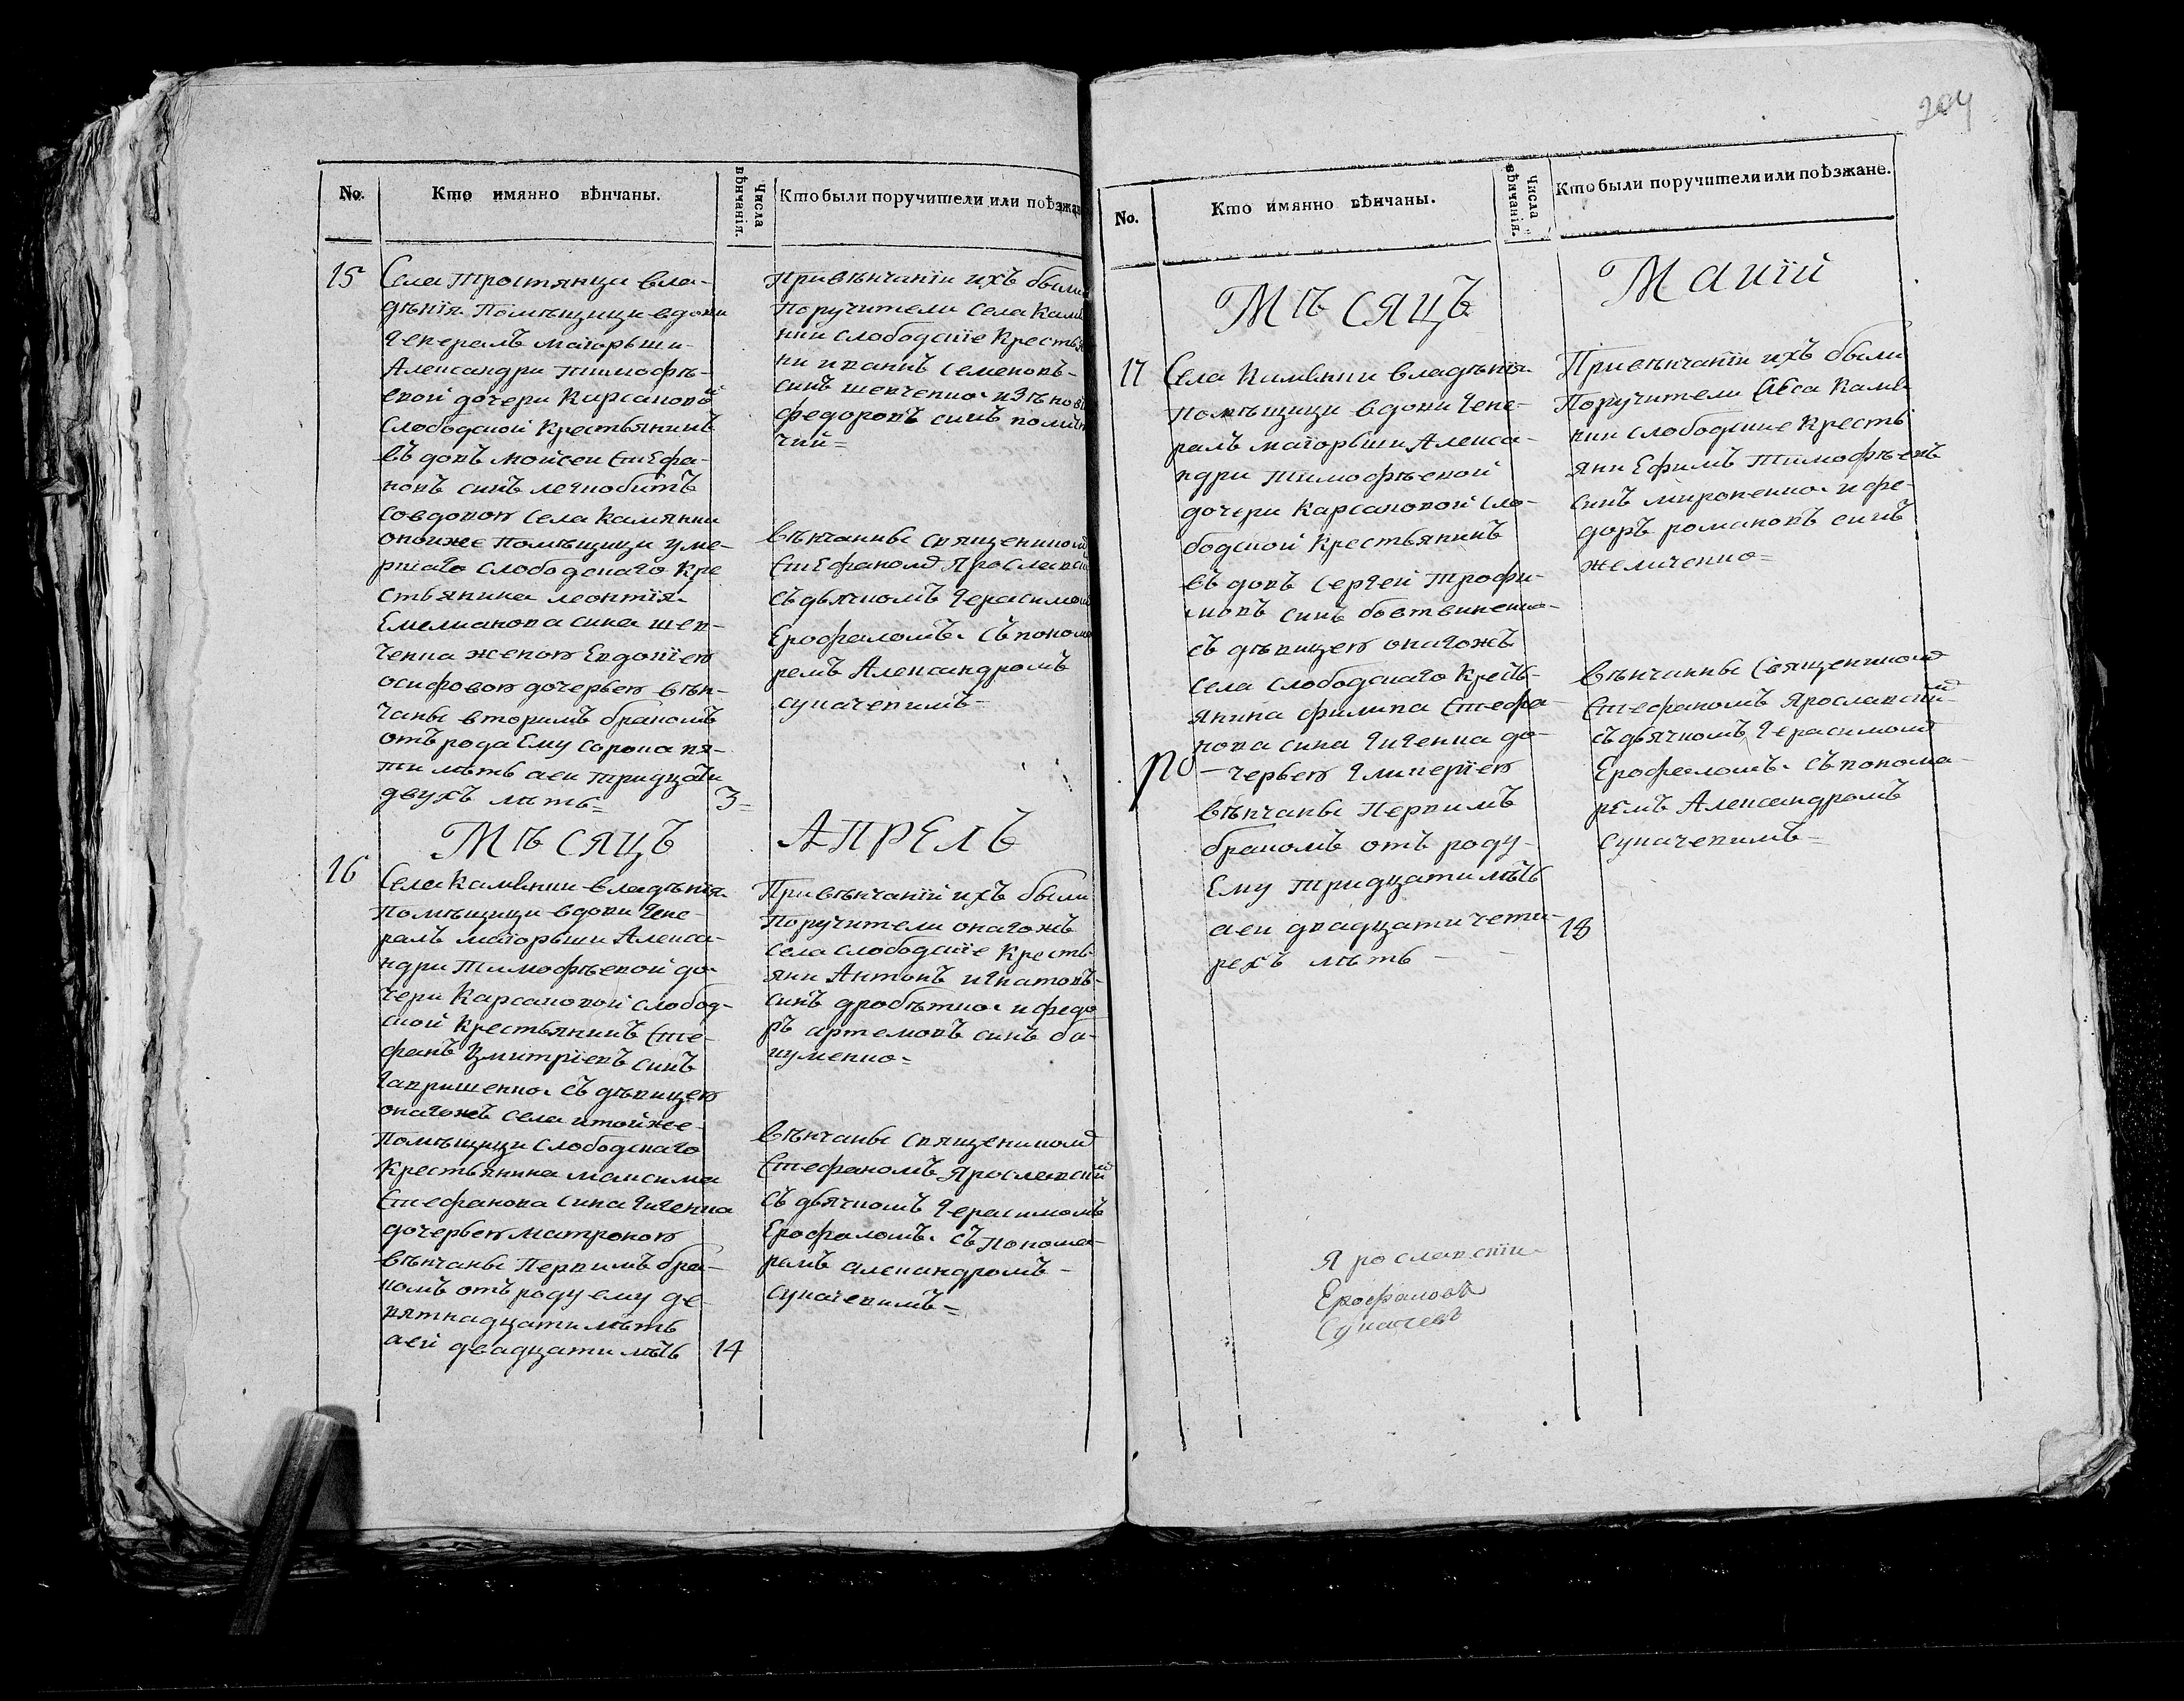 204
No.
Кто имянно вѣнчаны.
Числа вѣнчанія.
Кто были поручители или поѣзжа
15
Села Тростянци вла-
дѣнія Помѣщици вдови
генералъ маіорьши
Александри Тимофѣ-
евой дочери Карсановой
слободской Крестьянинъ
въ довъ мойсеи Стефа-
новъ синъ легкобитъ
совдовою села камянки
оноиже помѣщици уме-
ршаго слободскаго Кре
стьянина леонтія
Емелианова сина шев-
ченка женою Евдокіею
осифовою дочерью вѣн-
чаны вторимъ бракомъ
отъ рода Ему сорока пя-
ти лѣтъ аеи тридцати
двухъ лѣтъ=
3=
Привѣнчаніи ихъ были
Поручители села Каме
нки слободскіе Крестья
ни иванъ семеновъ
синъ шевченко
федоровъ синъ
чій=
вѣнчанны священикомъ
Стефаномъ Ярославски
съ дьячкомъ Герасимом
Ерофаломъ. съ понома
ремъ Александромъ
сукачевимъ-
Мѣсяцъ
АПРЕЛЬ
16
Села Каменки владѣнія
помѣщици вдови Гене-
ралъ маіорьши Алекса-
ндри Тимофѣевой до-
чери Карсановой слобод-
ской Крестьянинъ Сте-
фанъ Дмитріевъ синъ
Гавришенко. съ дѣвицею
онагожъ села итойже
Помѣщици слободскаго
Крестьянина максима
Стефанова сина Гигенка
дочерью матроною
вѣнчаны Первимъ бра-
комъ отъ роду ему де-
вятнадцати лѣтъ
аеи двадцати лѣтъ
14
Привѣнчаніи ихъ были
Поручители онагожъ
села слободскіе Кресть
яни Антонъ игнатовъ
синъ дробѣтко. и федо
ръ артемовъ синъ ба-
куменко=
вѣнчаны священикомъ
Стефаномъ Ярославскимъ
съ дьячкомъ Герасимомъ
Ерофаломъ. съ понома-
ремъ александромъ-
сукачевимъ=
No.
Кто имянно вѣнчаны.
Числа вѣнчанія.
Кто были поручители или поѣзжане.
Мѣсяцъ
Маиій
17
Села Каменки владѣнія
помѣщици вдови Гене-
ралъ маіорьши Алекса-
ндри Тимофѣевой
дочери Карсановой сло-
бодской Крестьянинъ
въ довъ Сергей Трофи-
мовъ синъ бовтвиненко
съ дѣвицею онагожъ
села слободскаго Кресть-
янина филипа Стефа-
нова сина Гигенка до-
черью Гликеріею
вѣнчаны Первимъ
бракомъ отъ роду
Ему тридцати лѣтъ
аеи двадцати чети-
рехъ лѣтъ -
18
Привѣнчаніи ихъ были
Поручители Села Каме
нки слободскіе Кресть
яни Ефимъ Тимофѣевъ
синъ мироненко. и фе-
доръ романовъ синъ
желиченко=
вѣнчанны Священикомъ
Стефаномъ Ярославскимъ
съ дьячкомъ Герасимомъ
Ерофаломъ. съ понома-
ремъ Александромъ
сукачевимъ=
по
Ярославскіи
Ерофаловъ
Сукачевъ